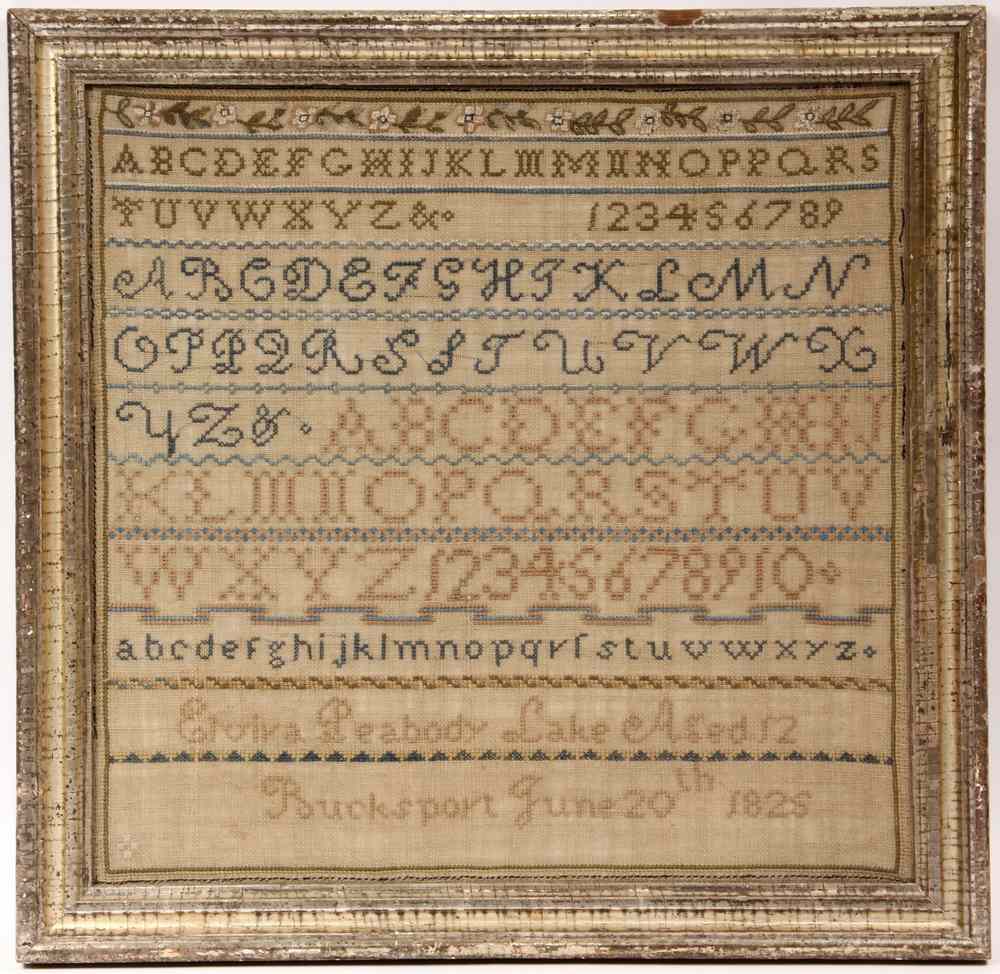 ABCDEFGHIJKLMMNNOPPQRS
TUVWXYZ& 123456789
ABCDEFGHIKLMN
OPPQRSSTUVWX
YZ& ABCDEFGHIJ
KLMNOPQRSTUV
WXYZ12345678910
abcdefghijklmnopqrſstuvwxyz
Peabody Lake Aged 12
Bucksport June 20th 1825